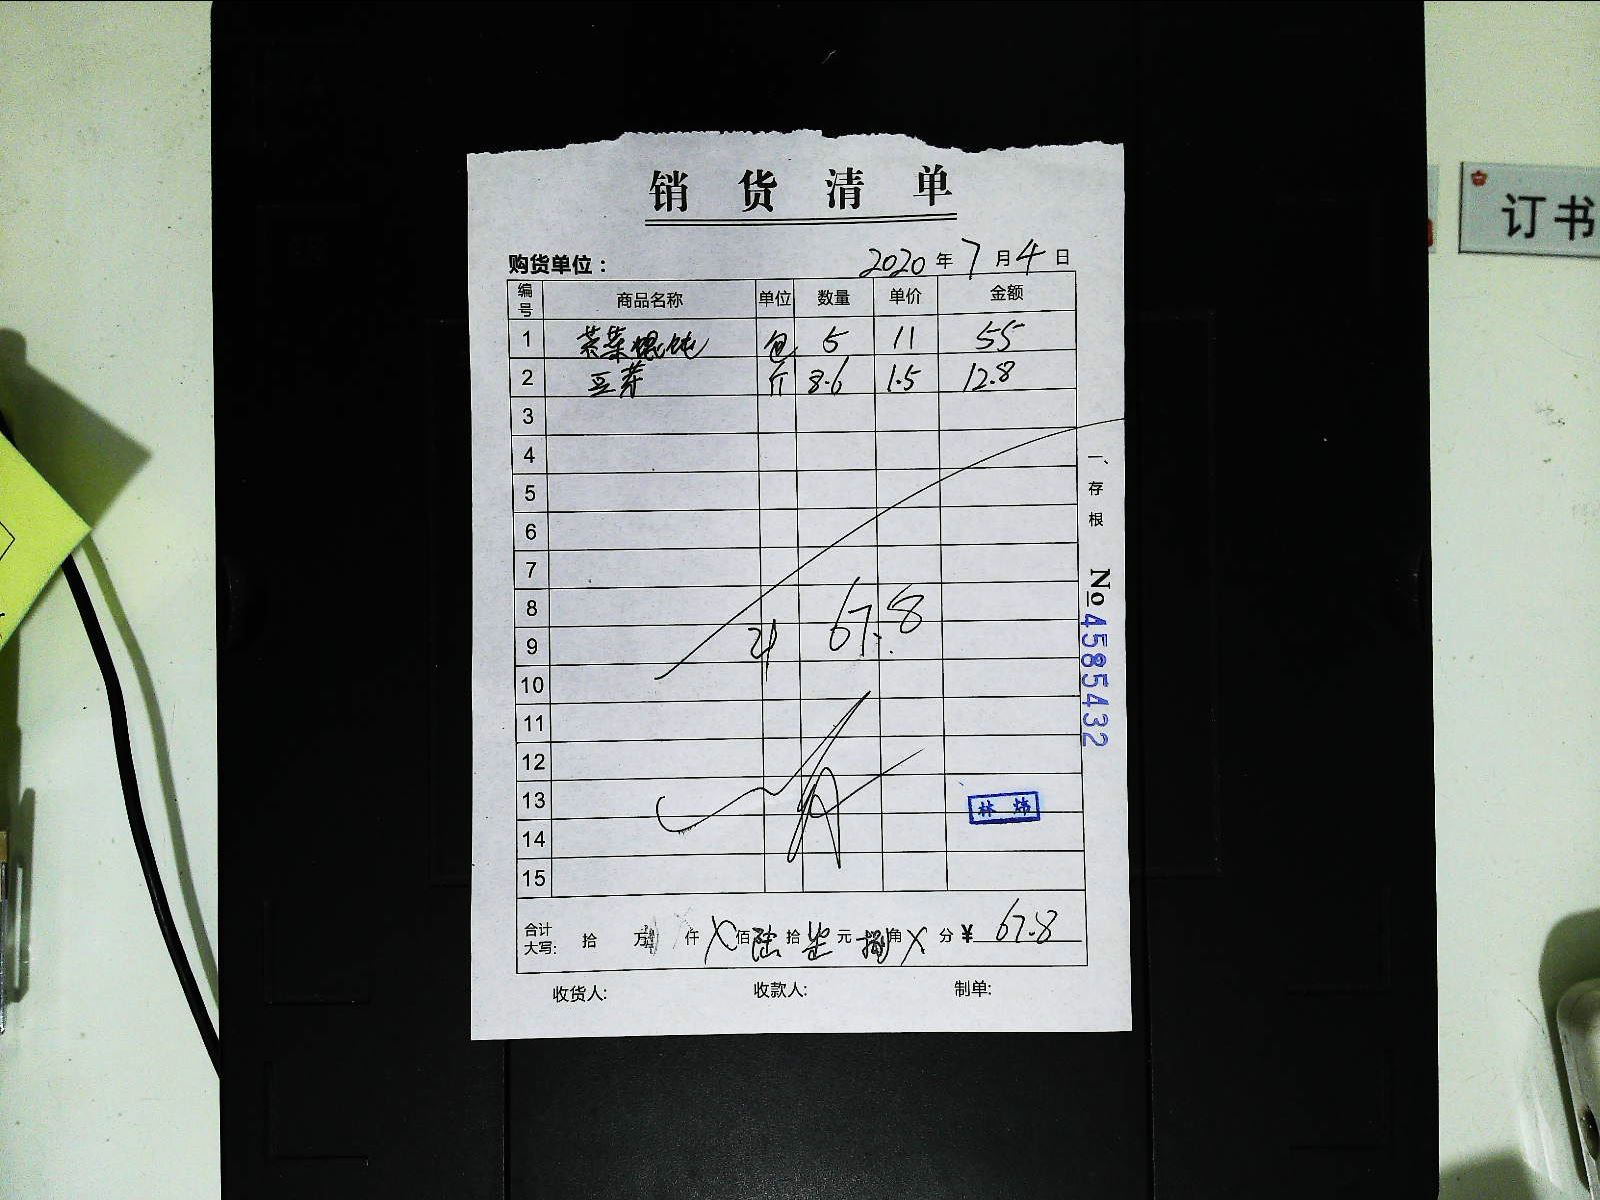 销货清单
订书
购货单位： 2020年7月4日
编号 商品名称 单位 数量 单价 金额
1 荠菜馄饨 包 5 11 55
2 豆芽 斤 8.6 1.5 12.8
3
4
5
6
7
8
9 计 67.8
10
11
12
13 林炜
14
15
一、存根 No 4585432
合计大写: 拾 万 仟 X佰 陆拾 柒元 捌角 X分 ¥ 67.8
收货人: 收款人: 制单: